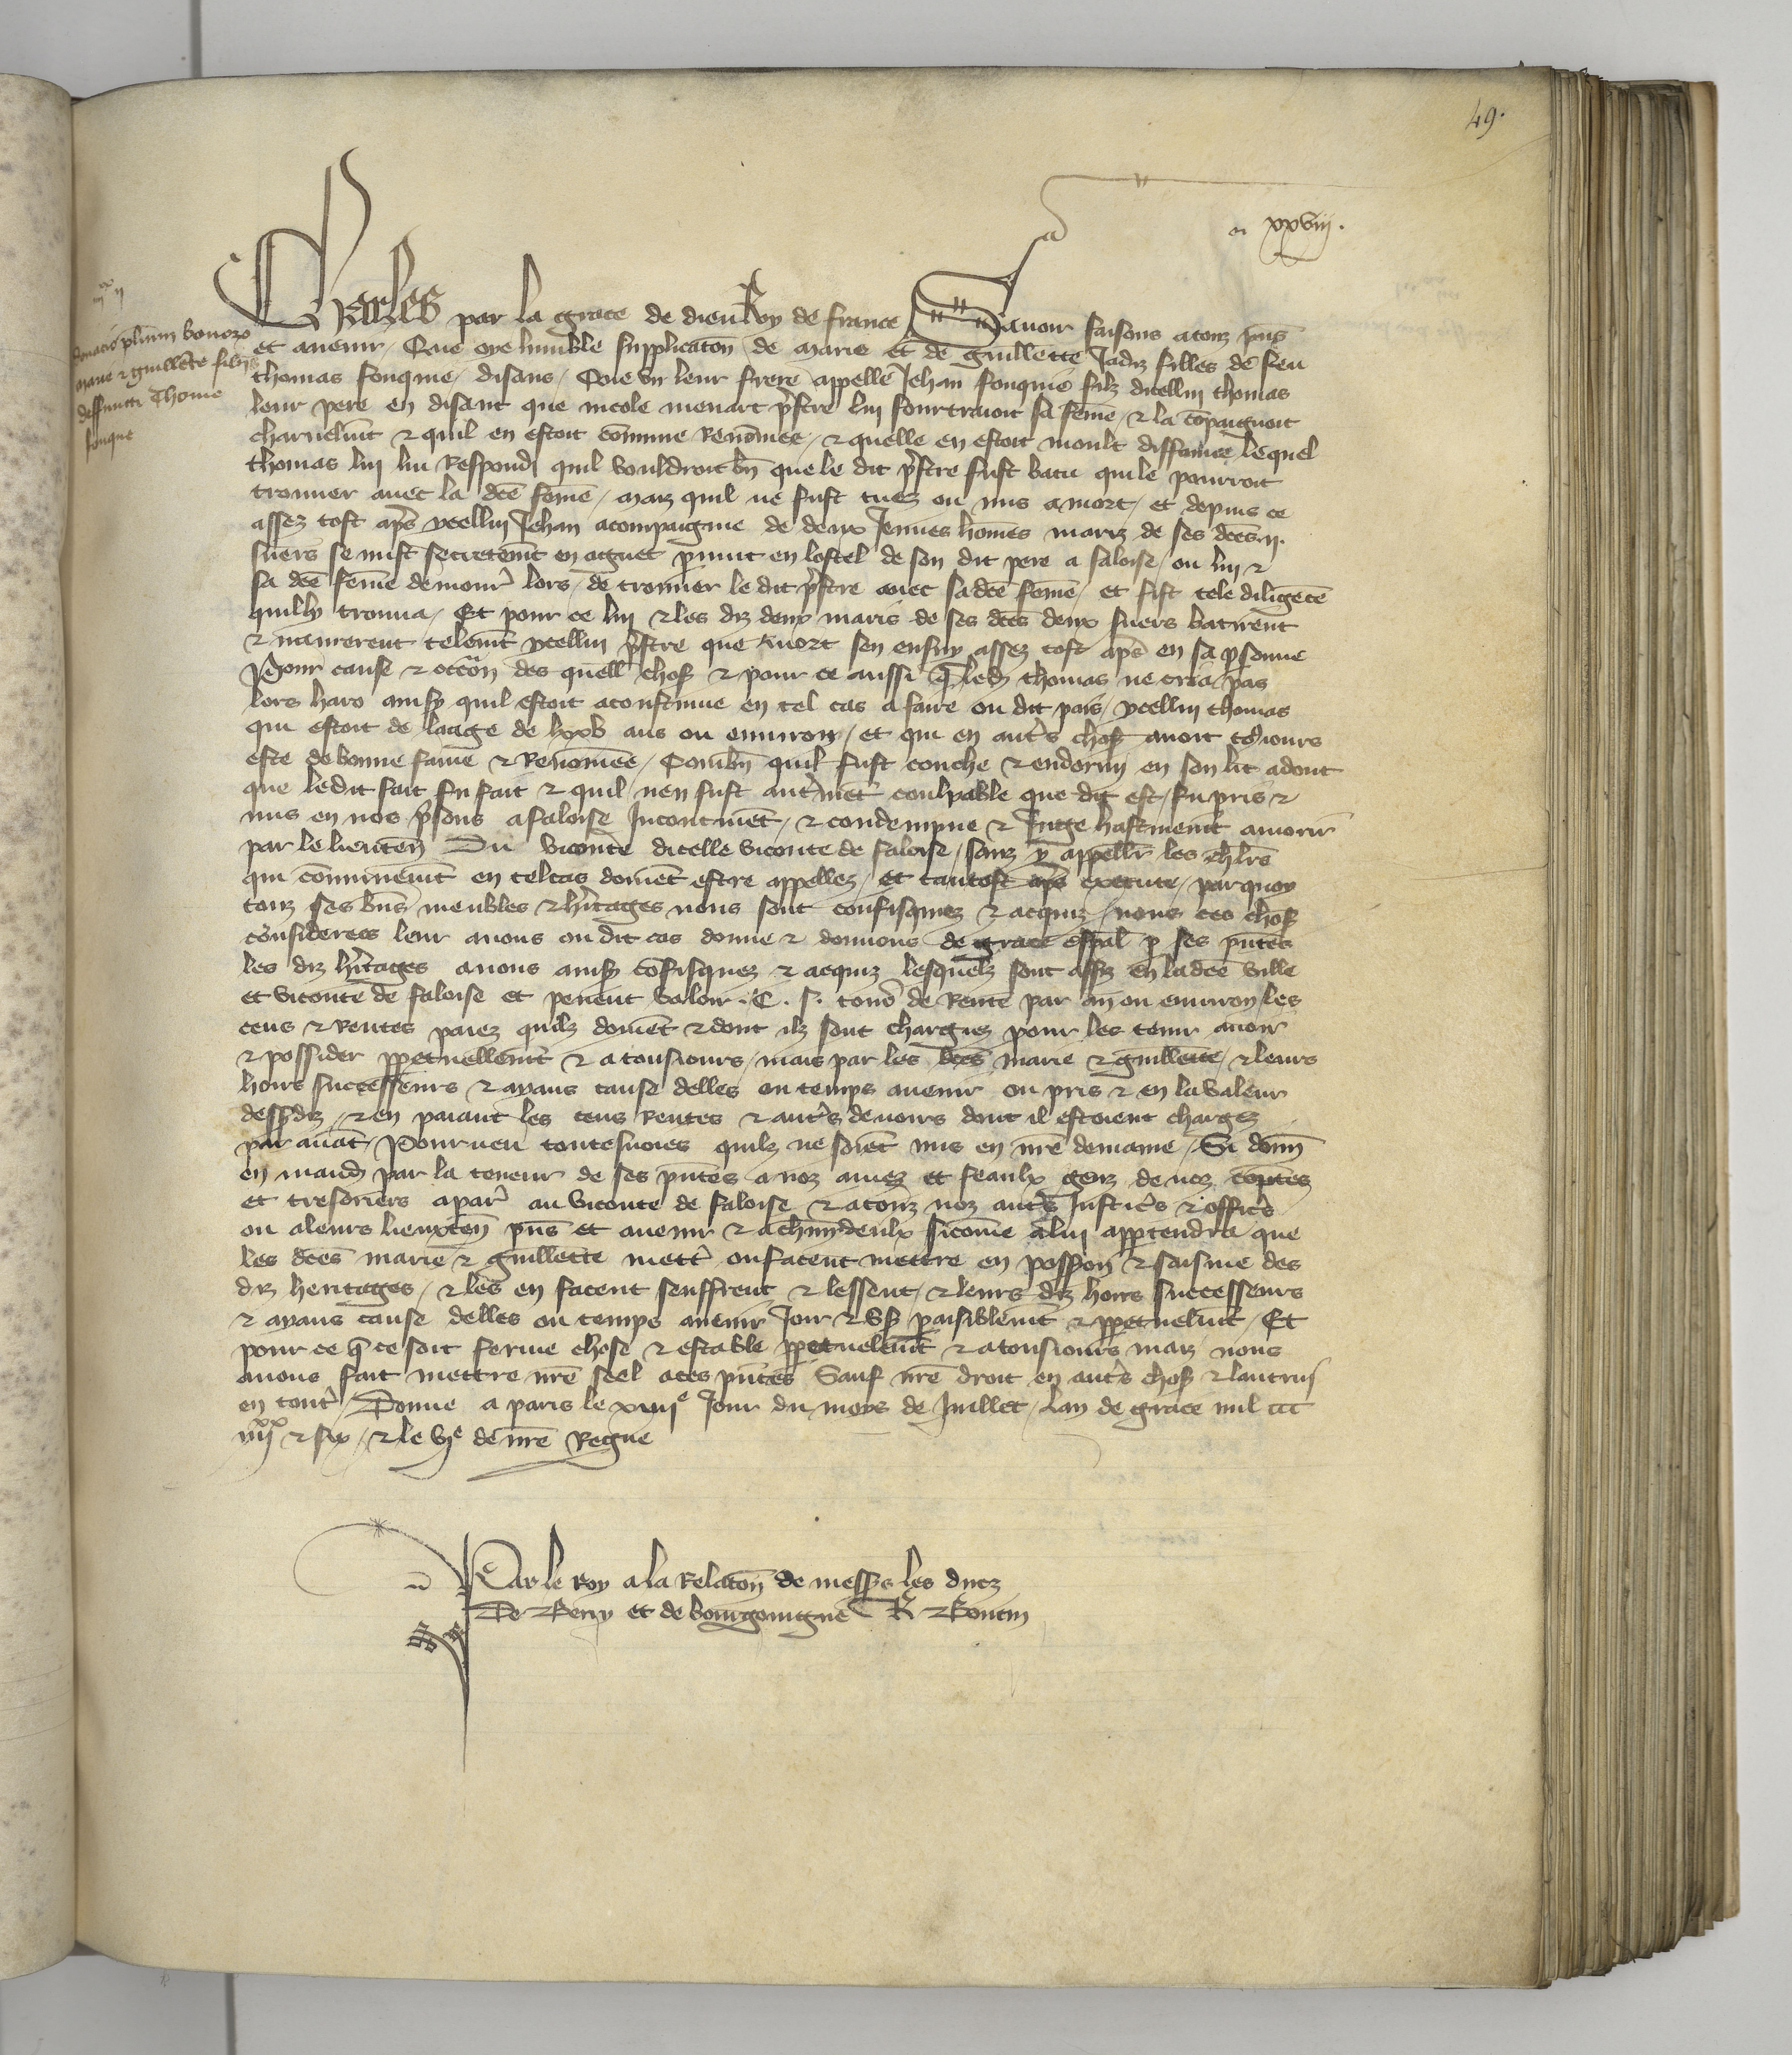 49.
n xxviii.
iiiixx ii
donacio plurium bonorum
marie & guillete filiis
deffuncti Thome
fouque
Charles par la grace de dieu Roy de france Sauoir faisons a touz pñs
et auenir / Que oye lumble supplicatoñ de marie et de guillette Jadiz filles de feu
thomas fouquie / disans / Que vn leur frere appelle Jehan fouquie filz dicellui thomas
leur pere en disant que nicole menart pr̃stre lui fourtraioit sa fem̃e / & la cõpaignoit
charnelm̃t & quil en estoit cõmune Renõmee / & quelle en estoit moult diffamee lequel
thomas lui Respondi quil vouldroit bñ que le dit pr̃stre fust batu qui le pourroit
trouuer auec la dcẽ fem̃e / maiz quil ne fust tuez ou mis a mort / et depuis ce
assez tost apr̃s ycellui Jehan acompaigne de deux Jeunes hom̃es mariz de ses dcẽs .ii.
suers se mist secretem̃t en aguet p nuit en lostel de son dit pere a faloise / ou lui &
sa dcẽ fem̃e demour̃ lors / de trouuer le dit pr̃stre auec sa dcẽ fem̃e / et fist tele diligẽce
quilly trouua / Et pour ce lui & les diz deux maris de ses dcẽs deux suers batirent
& naurerent telem̃t ycellui pr̃stre que mort sen ensuy assez tost apr̃s en sa psonne
Pour cause & occõn des quell choses & pour ce aussi q̃ led thomas ne cria pas
lors haro ainsy quil estoit acoustume en tel cas a faire ou dit pais / ycellui thomas
qui estoit de laage de lxxv ans ou enuiron / et qui en autr̃s choses auoit tousiours
este de bonne fame & Renõmee / Combñ quil fust couche & endormy en son lit adont
que ledit fait fu fait & quil nen fust autr̃mẽt coulpable que dit est / fu pris &
mis en nos pr̃sons a faloise Incontinẽt / & condempne & Juge hastiuem̃t a morir
par le lieuteñ Du viconte dicelle viconte de faloise / sanz y appeller les chlr̃s
qui conuinem̃t en tel cas doiuẽt estre appellez / et tantost apr̃s execute / parquoy
touz ses bñs meubles & hr̃itages nous sont confisquez & acquiz / nous ces choses
considerees leur auons ou dit cas donne & donnons de grace esp̃al p ses pñtes
les diz hr̃itages a nous ainsy cõfisquez & acquiz lesquelx sont assis en la dcẽ ville
et viconte de faloise et peuent valoir .C. s. tourñ de Rente par an ou enuiron / les
cens & Rentes paiez quilz doiuẽt & dont ilz sont chargiez pour les tenir auoir
& possider ppetuellem̃t & a tousiours / mais par les dcẽs marie & guillette / & leurs
hoirs successeurs & ayans cause delles ou temps auenir ou pris & en la valeur
dessusdiz / & en paiant les cens Rentes & autr̃s deuoirs dont il estoient chargez
par auãt / Pourueu toutesuoies quilz ne soiẽt mis en nr̃e demaine / Si donñ
en mandem̃ par la teneur de ses pñtes a noz amez et feaulx genz de noz comptes
et tresoriers a par̃ au viconte de faloise & a touz noz autr̃s Justicr̃s & officr̃s
ou a leurs lieuxteñ pñs et auenir & a chun deulx sicom̃e a lui appartendra que
les dcẽs marie & guillette mettẽ ou facent mettre en poss̃on & saisine des
diz heritages / & les en facent seuffrent & lessent / & leurs diz hoirs successeurs
& ayans cause delles ou temps auenir Joir & vser paisiblem̃t & ppetuelm̃t / Et
pour ce q̃ ce soit ferme chose & estable ppetuelem̃t & a tousiours maiz nous
auons fait mettre nr̃e seel a ces pñtes Sauf nr̃e droit en autr̃s choses & lautruy
en tout̃ / Donne a paris le xiiiie Jour du moys de Juillet / lan de grace mil ccc
iiiixx & six / & le vje de nr̃e Regne
Par le roy a la relatoñ de mess̃s les ducz
De Berry et de bourgoingne R Boutin